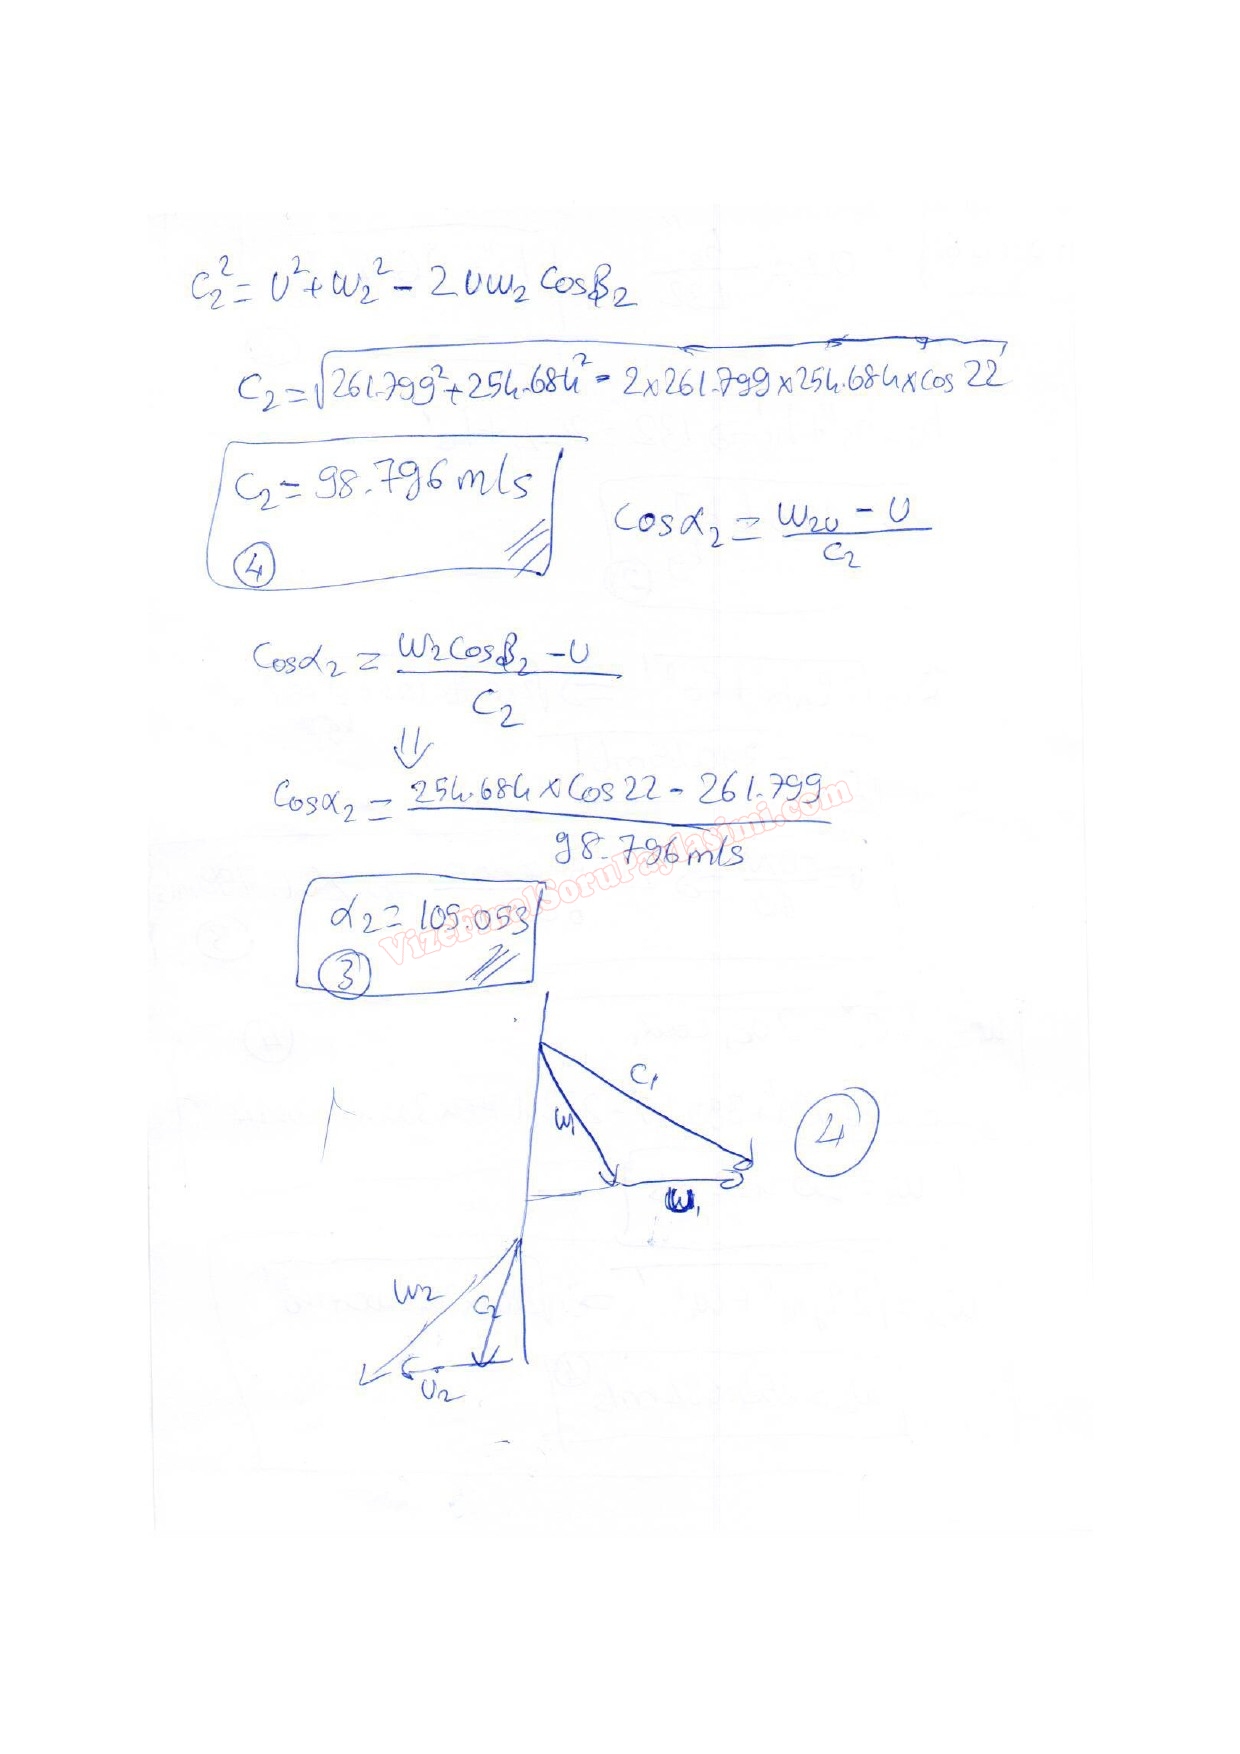 C₂² = U² + W₂² - 2UW₂ Cosβ₂
C₂ = √261.799² + 254.684² - 2x261.799x254.684xcos 22
C₂ = 98.796 m/s
④
Cosα₂ = W₂U - U / C₂
Cosα₂ = W₂Cosβ₂ - U / C₂
⇓
Cosα₂ = 254.684 x Cos 22 - 261.799 / 98.796 m/s
VizeFinalSoruPaylasimi.com
α₂ = 105.053
③
C₁
W₁
④
U₁
W₂
C₂
U₂